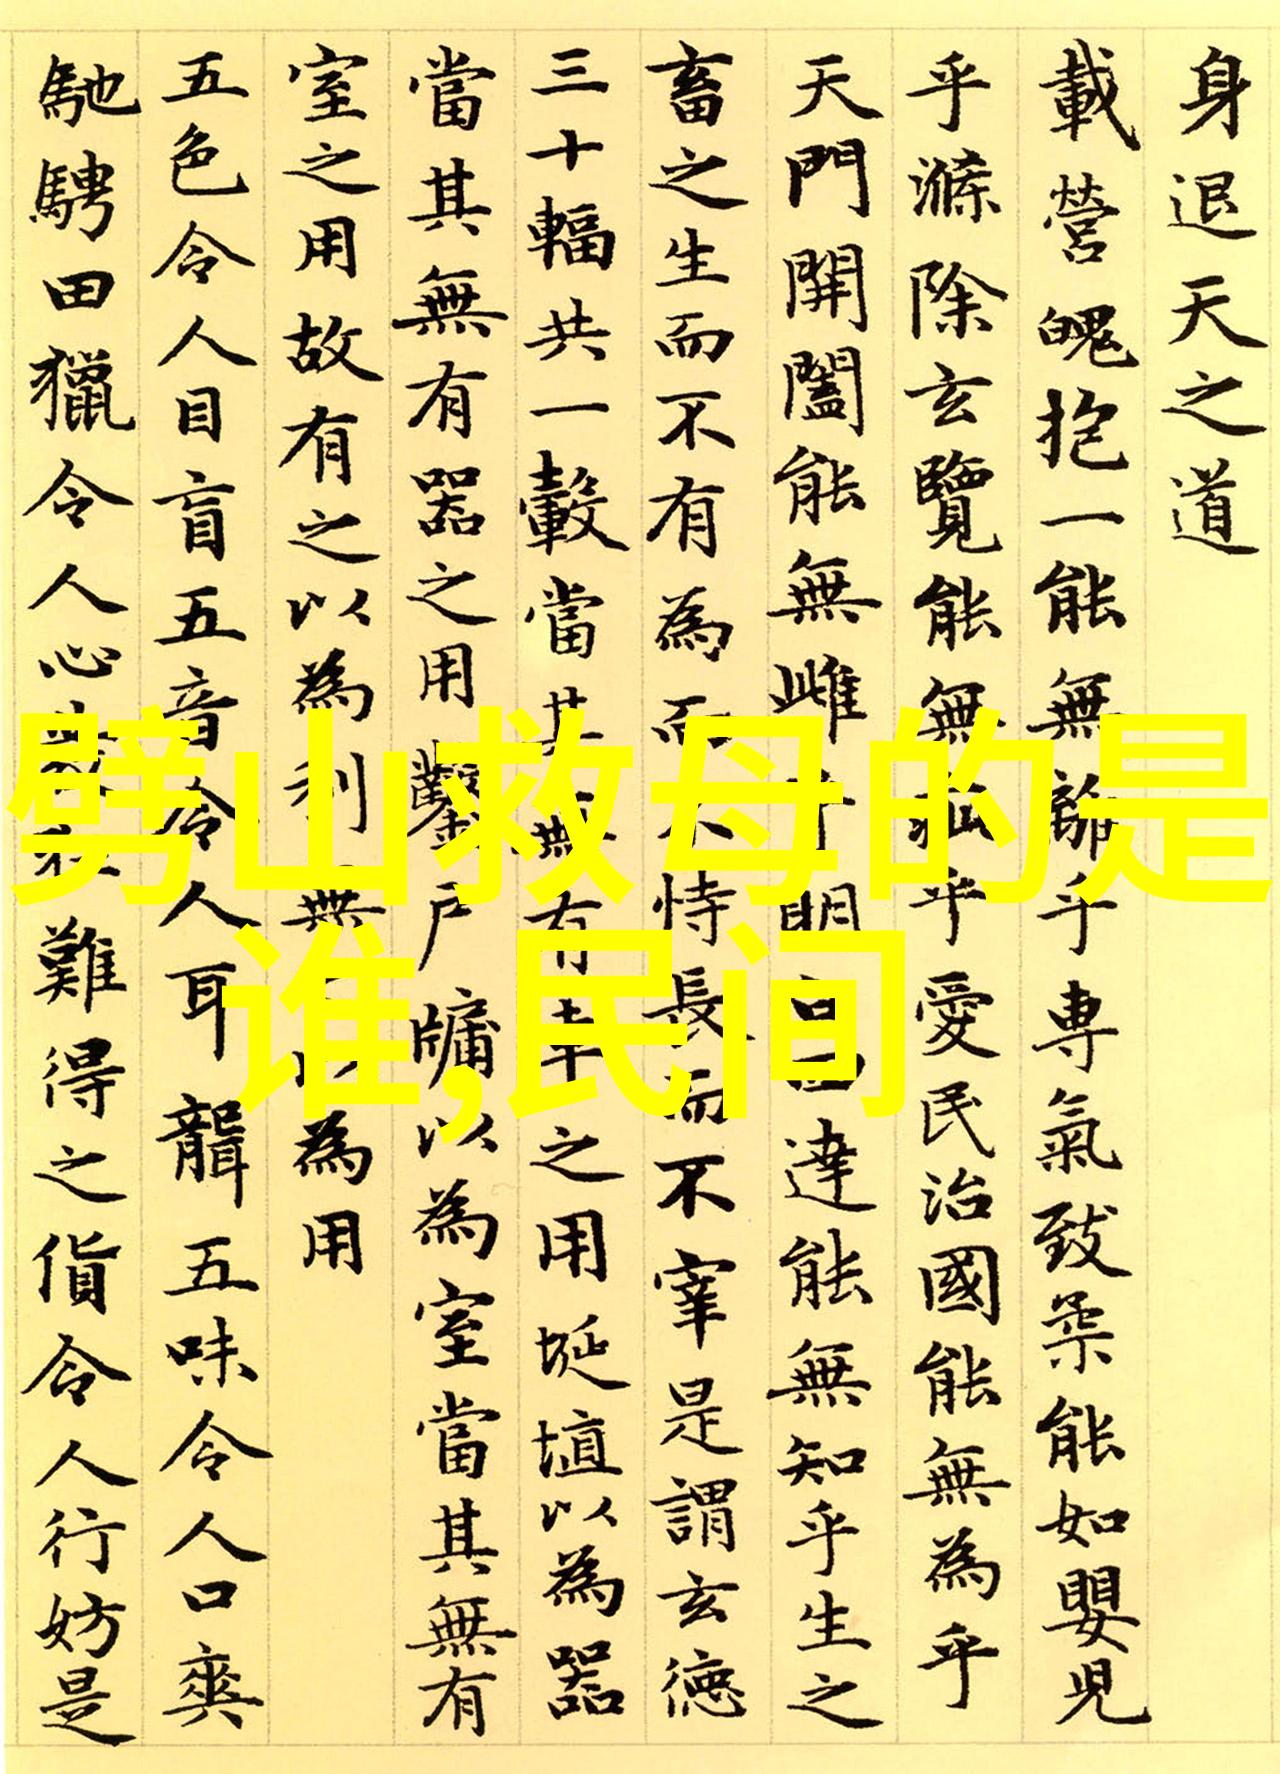 身退天之道
載營魄抱一能無離乎專氣致柔能如嬰兒
乎滌除玄覽能無疵乎愛民治國能無為乎
天門開闔能無雌乎明白四達能無知乎生之
畜之生而不有為而不恃長而不宰是謂玄德
三十輻共一轂當其無有車之用埏埴以為器
當其無有器之用鑿戶牖以為室當其無有
室之用故有之以為利無之以為用
五色令人目盲五音令人耳聾五味令人口爽
馳騁田獵令人心發狂難得之貨令人行妨是
劈山救母的是
谁,民间